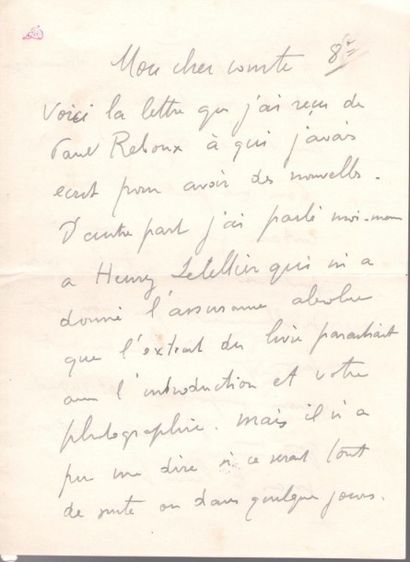 Mon cher comte 8
Voici la lettre que j'ai reçu de
Paul Reboux à qui j'avais
ecrit pour avoir des nouvelles.
D'autre part j'ai parlé moi-meme
a Henry Letellier qui m'a
donné l'assurance absolue
que l'extrait du livre paraitrait
avec l'introduction et votre
photographie. Mais il n'a
pu me dire si ce serait tout
de suite ou dans quelque jours.